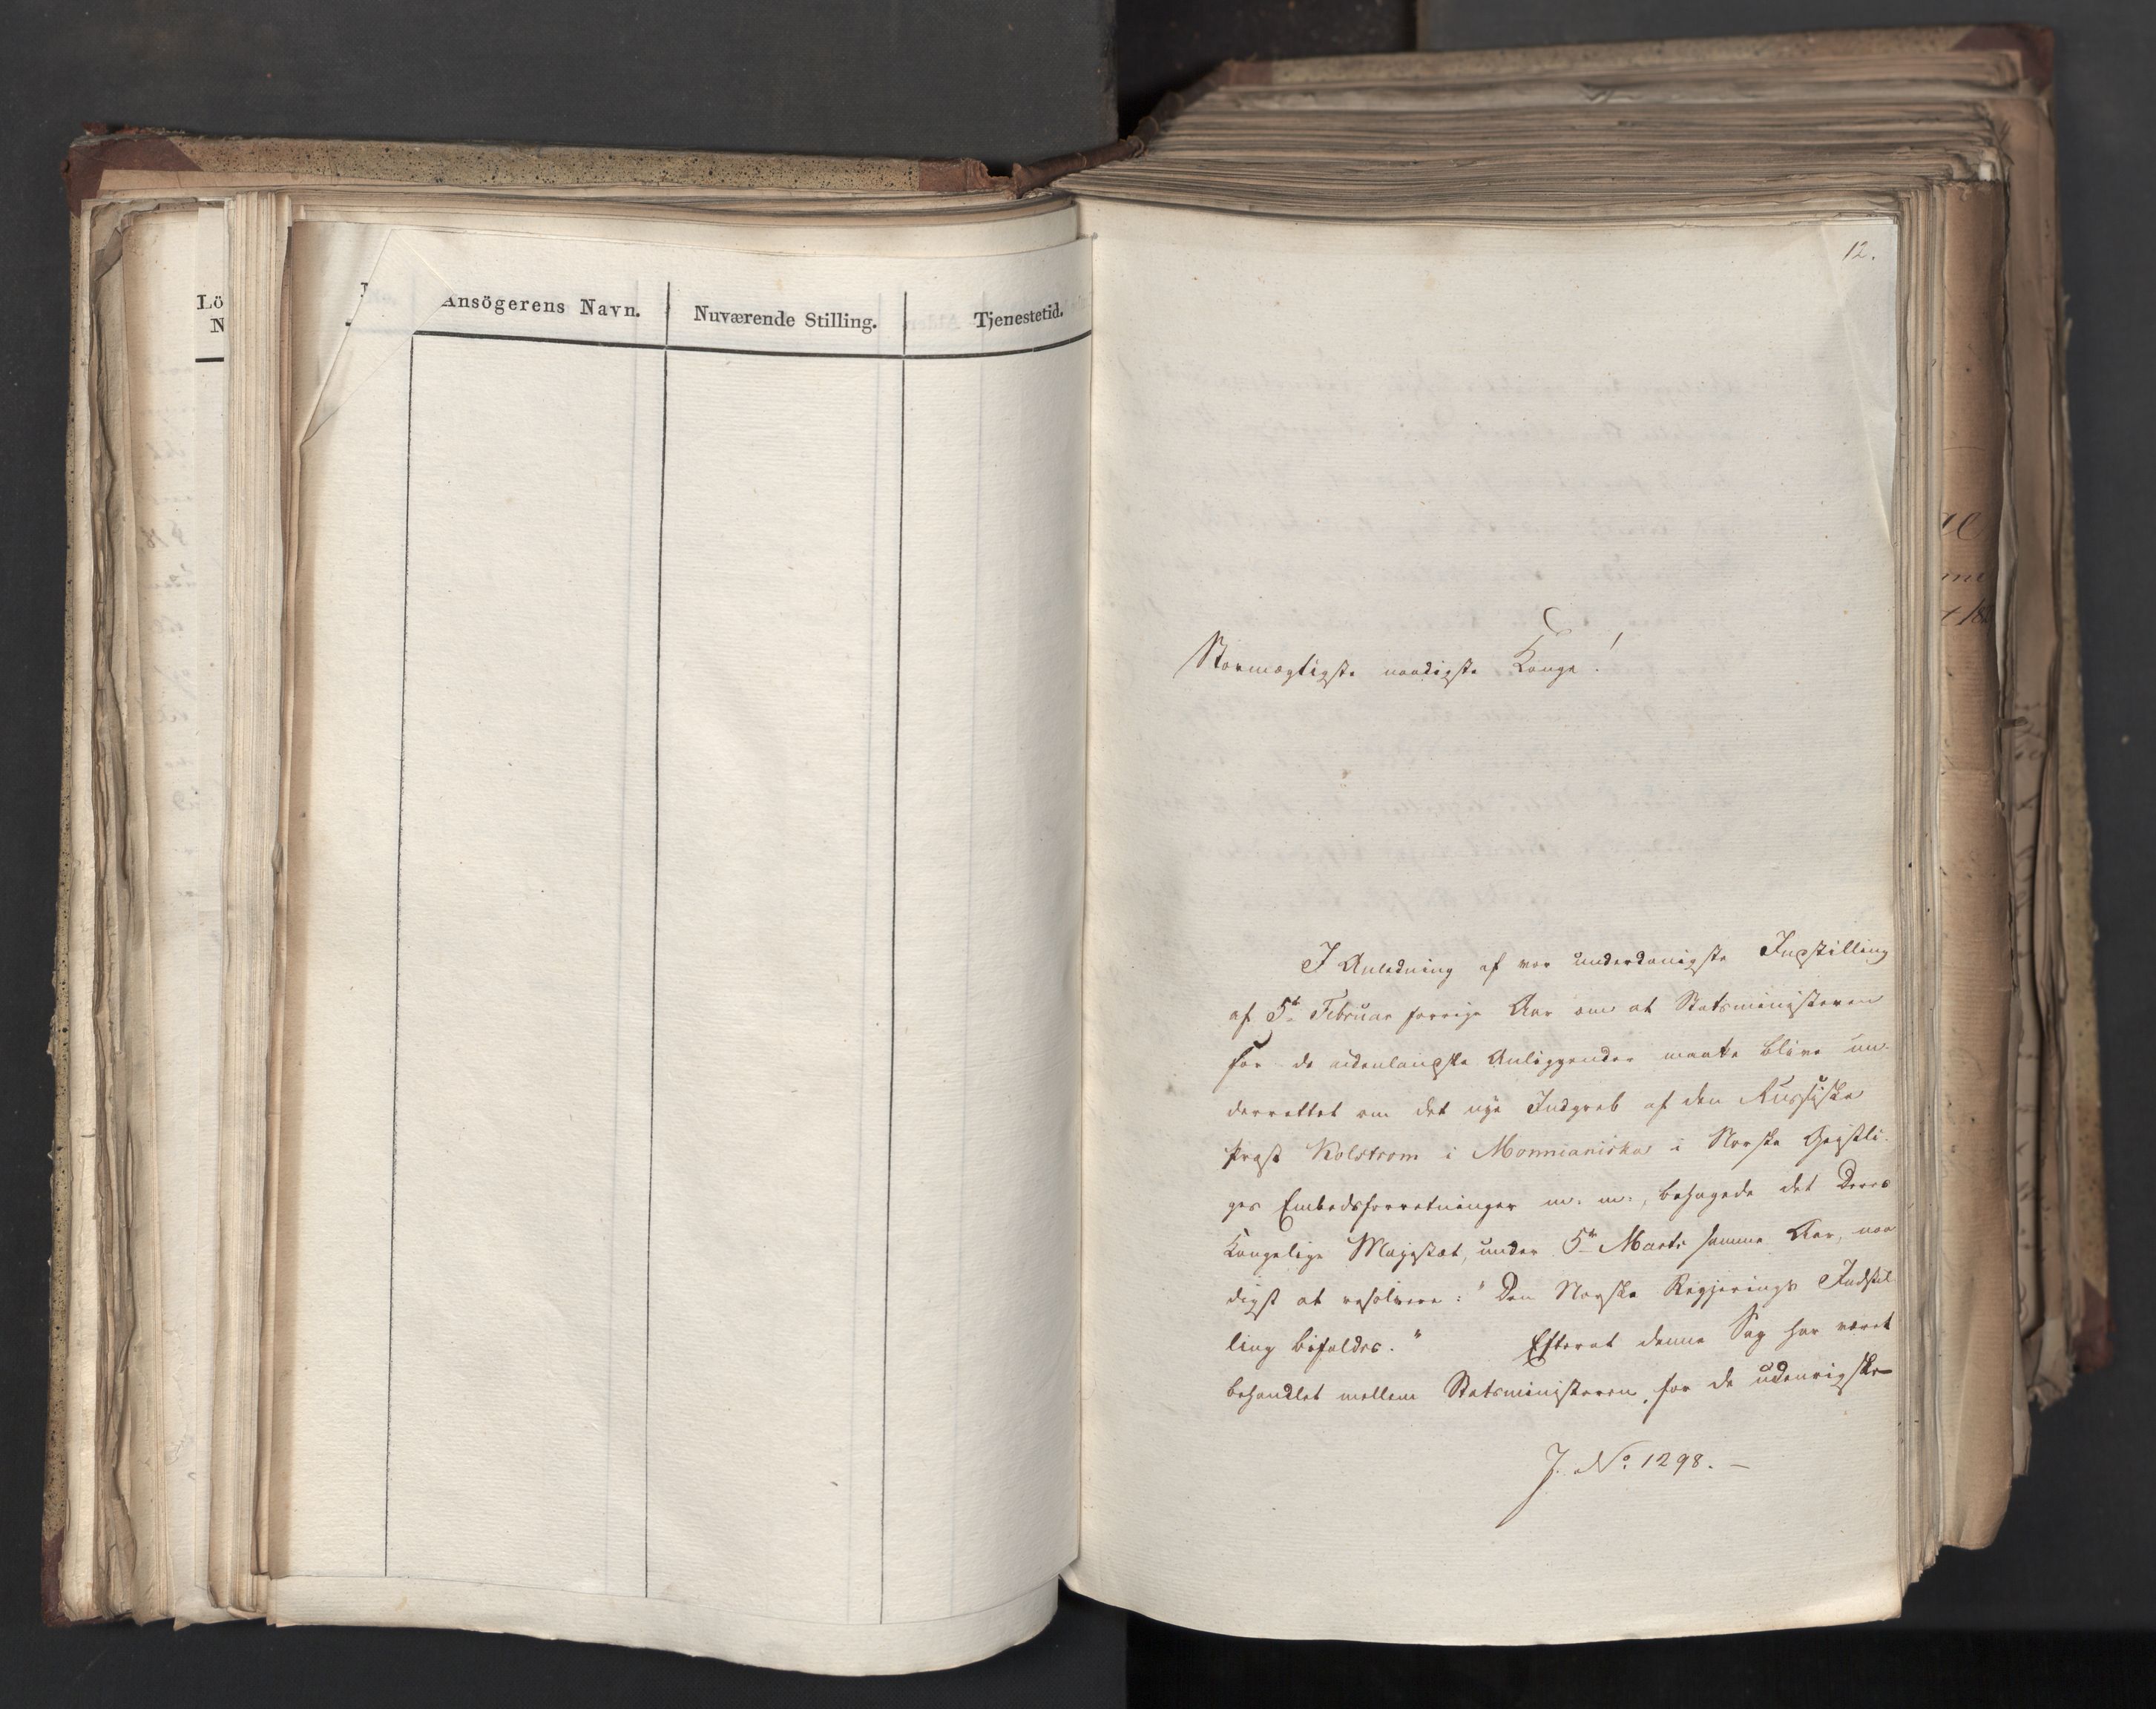 Lö
N
Ansögerens Navn.
Nuværende Stilling.
Tjenestetid.
12.
Stormægtigste naadigste Konge!
I Anledning af vor underdanigste Indstilling
af 5te Februar forrige Aar om at Statsministeren
for de udenlandske Anliggender maatte blive un-
derrettet om det nye Indgreb af den Russiske
Præst Kolstrom i Monnianiska i Norske Geistli-
ges Embedsforretninger m. m., behagede det Deres
Kongelige Majestæt, under 5te Marts samme Aar, naa
digst at resolvere: "Den Norske Regjerings Indstil
ling bifaldes." Efterat denne Sag har været
behandlet mellem Statsministeren for de udenrigske
J. No. 1298. —